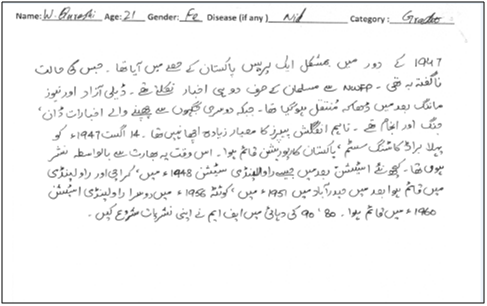 Name: W. Qureshi Age: 21 Gender: Fe Disease (if any) Nil Category: Gradto
1947 کے دور میں بمشکل ایک پریس پاکستان کے حصے میں آیا تھا۔ جس کی حالت
ناگفتہ بہ تھی۔ NWFP سے مسلمان کے صرف دو ہی اخبار نکلتے تھے۔ ڈیلی آزاد اور نیوز
مارننگ بعد میں ڈھاکہ منتقل ہوگیا تھا۔ جبکہ دوسری جگہوں سے چھپنے والے اخبارات ڈان،
جنگ اور انجام تھے۔ تاہم انگلش پیپرز کا معیار زیادہ اچھا نہیں تھا۔ 14 اگست 1947ء کو
پہلا براڈ کاسٹنگ سسٹم، پاکستان کارپوریشن قائم ہوا۔ اس وقت یہ بھارت سے بالواسطہ نشر
ہوتی تھا۔ کچھ نئے اسٹیشن بعد میں جیسے راولپنڈی سٹیشن 1948ء میں، کراچی اور راولپنڈی
میں قائم ہوا بعد میں حیدرآباد میں 1951ء میں، کوئٹہ 1956ء میں دوسرا راولپنڈی اسٹیشن
1960ء میں قائم ہوا۔ 80، 90 کی دہائی میں ایف ایم نے اپنی نشریات شروع کیں۔